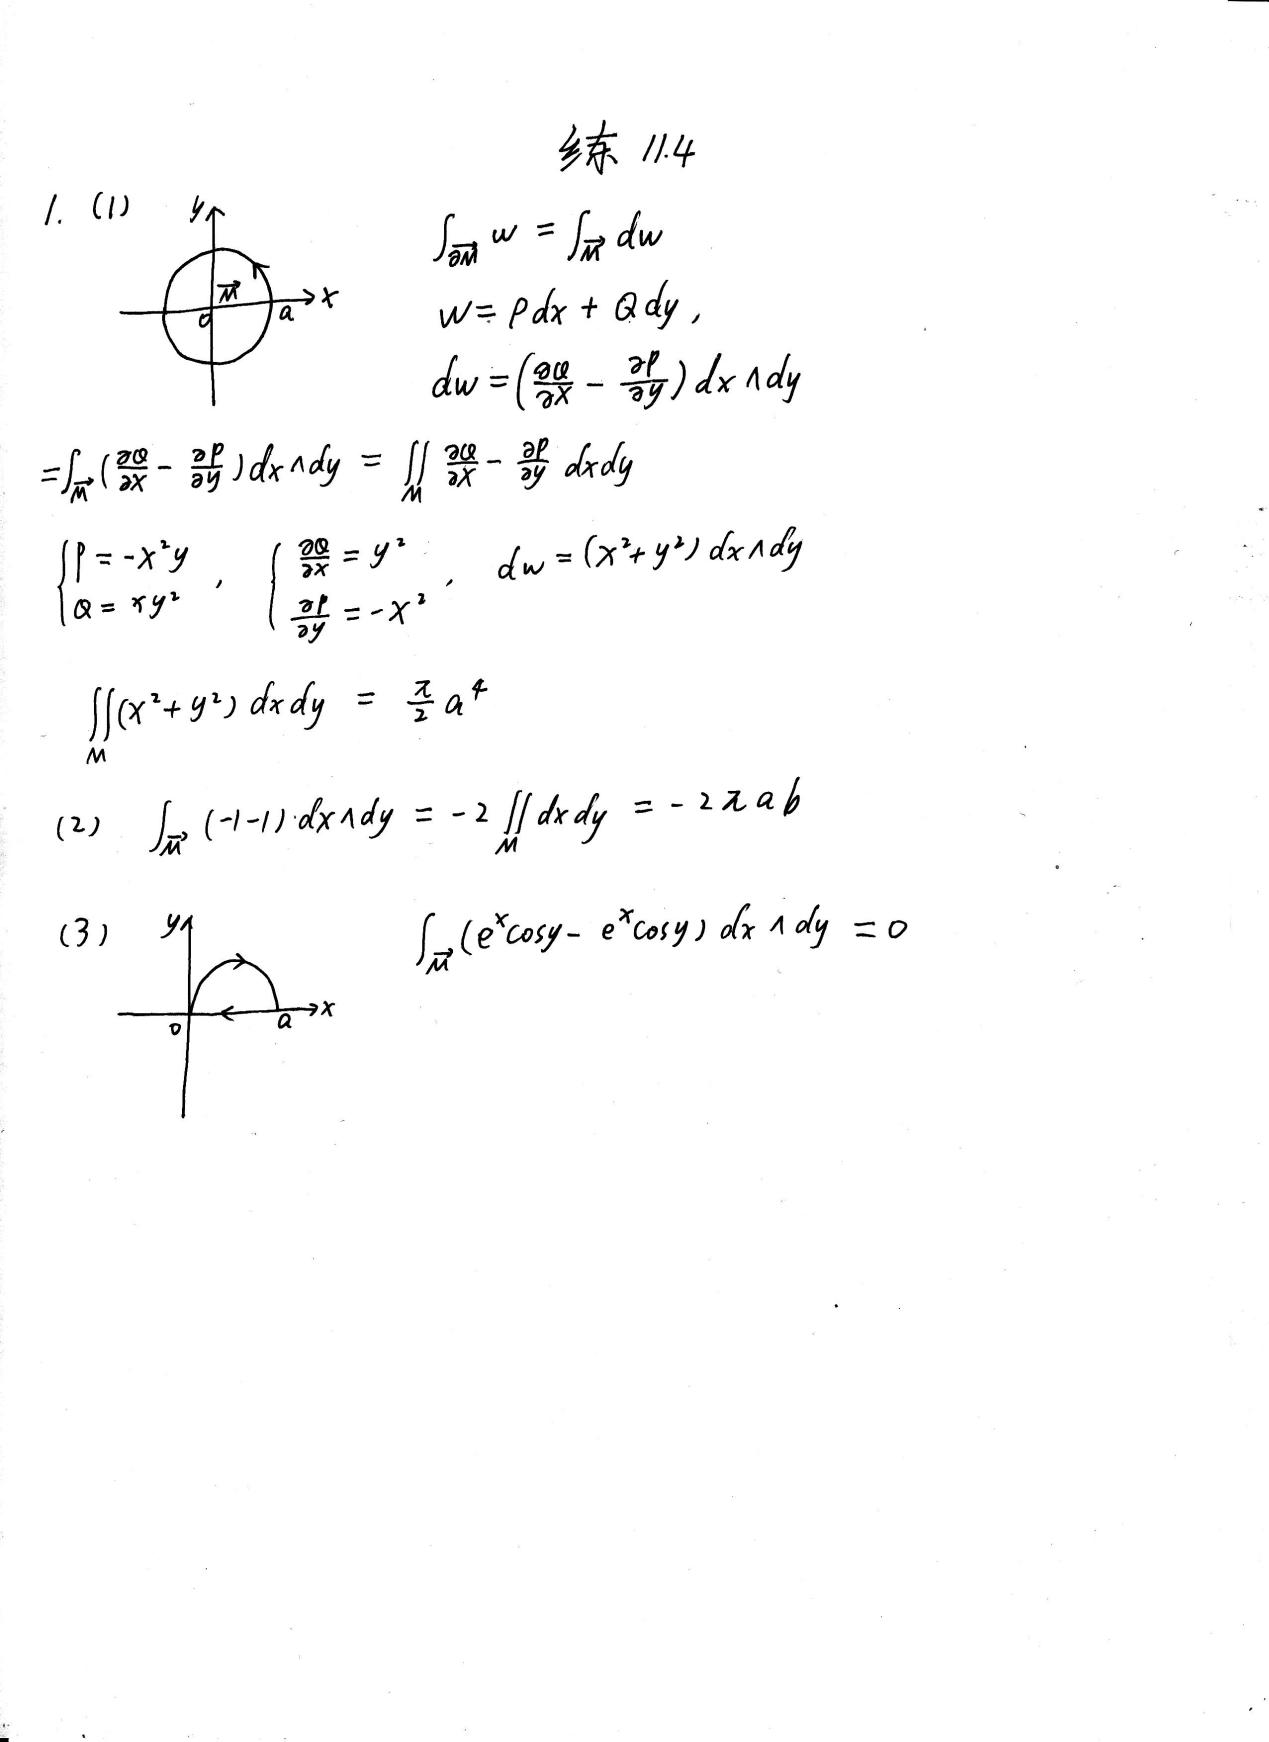 练 11.4
1. (1) y x a o M⃗
∫_{∂M⃗} w = ∫_{M⃗} dw
w = Pdx + Qdy,
dw = (∂Q/∂x - ∂P/∂y) dx∧dy
= ∫_{M⃗} (∂Q/∂x - ∂P/∂y) dx∧dy = ∬_M ∂Q/∂x - ∂P/∂y dxdy
{P = -x²y, Q = xy², {∂Q/∂x = y², ∂P/∂y = -x², dw = (x²+y²) dx∧dy
∬_M (x²+y²) dxdy = π/2 a⁴
(2) ∫_{M⃗} (-1-1)·dx∧dy = -2 ∬_M dxdy = -2πab
(3) y x a o ∫_{M⃗} (eˣcosy - eˣcosy) dx∧dy = 0